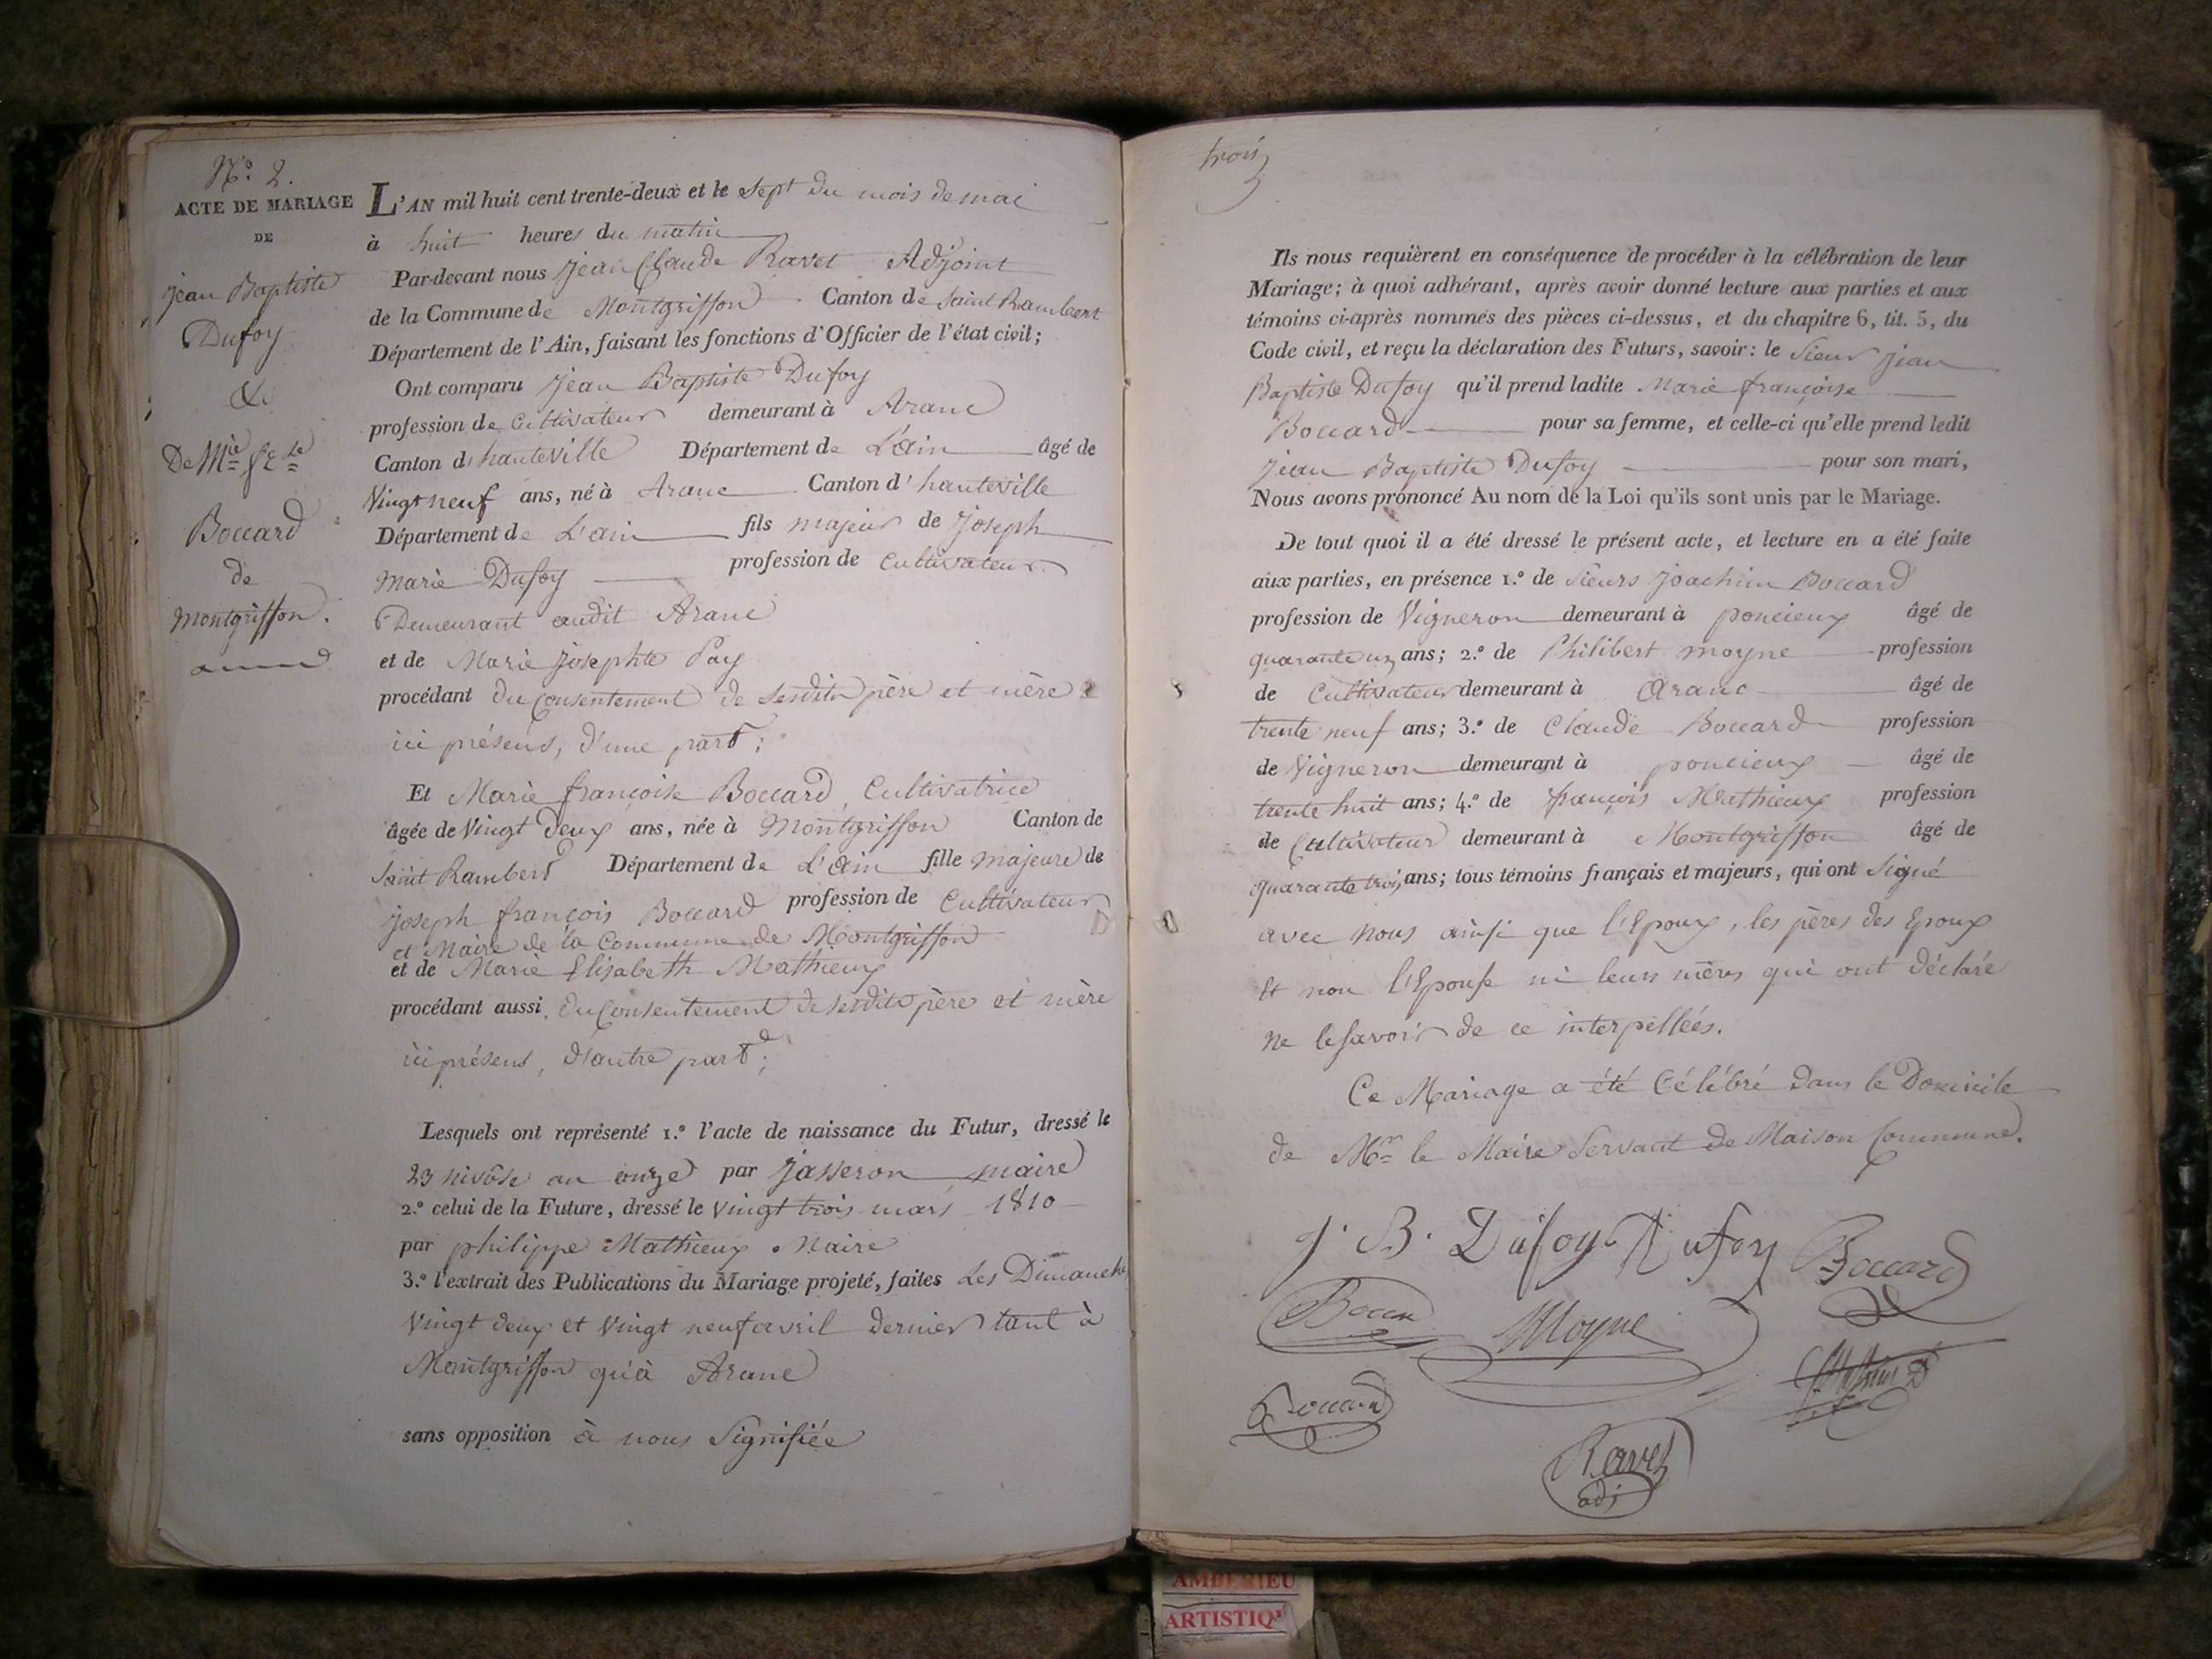 N.o 2.
ACTE DE MARIAGE
DE
Jean Baptiste
Dufoy
&
De Mie fse
Boccard
de
Montgriffon.
L'AN mil huit cent trente-deux et le sept du mois de mai
à huit heures du matin
Par-devant nous Jean Claude Ravet Adjoint
de la Commune de Montgriffon Canton de Saint Rambert
Département de l'Ain, faisant les fonctions d'Officier de l'état civil;
Ont comparu Jean Baptiste Dufoy
profession de Cultivateur demeurant à Aranc
Canton d'hauteville Département de L'ain âgé de
Vingt neuf ans, né à Aranc Canton d'hauteville
Département de L'ain fils majeur de Joseph
Marie Dufoy profession de Cultivateur
Demeurant audit Aranc
et de Marie Josephte Pay
procédant du Consentement de sesdits père et mère
ici présens, d'une part;
Et Marie françoise Boccard, Cultivatrice
âgée de Vingt deux ans, née à Montgriffon Canton de
Saint Rambert Département de L'ain fille majeure de
Joseph françois Boccard profession de Cultivateur
et Maire de la Commune de Montgriffon
et de Marie Elisabeth Mathieux
procédant aussi du Consentement de sesdits père et mère
ici présens, d'autre part;
Lesquels ont représenté 1.o l'acte de naissance du Futur, dressé le
23 nivôse an onze par Jasseron maire
2.o celui de la Future, dressé le vingt trois mars 1810
par philippe Mathieux Maire
3.o l'extrait des Publications du Mariage projeté, faites Les Dimanches
Vingt deux et Vingt neuf avril dernier tant à
Montgriffon qu'à Aranc
sans opposition à nous Signifiée
trois
Ils nous requièrent en conséquence de procéder à la célébration de leur
Mariage; à quoi adhérant, après avoir donné lecture aux parties et aux
témoins ci-après nommés des pièces ci-dessus, et du chapitre 6, tit. 5, du
Code civil, et reçu la déclaration des Futurs, savoir: le Sieur Jean
Baptiste Dufoy qu'il prend ladite Marie françoise
Boccard pour sa femme, et celle-ci qu'elle prend ledit
Jean Baptiste Dufoy pour son mari,
Nous avons prononcé Au nom de la Loi qu'ils sont unis par le Mariage.
De tout quoi il a été dressé le présent acte, et lecture en a été faite
aux parties, en présence 1.o de Sieurs Joachim Boccard
profession de Vigneron demeurant à poncieux âgé de
quarante un ans; 2.o de Philibert Moyne profession
de Cultivateur demeurant à Aranc âgé de
trente neuf ans; 3.o de Claude Boccard profession
de Vigneron demeurant à poncieux âgé de
trente huit ans; 4.o de françois Mathieux profession
de Cultivateur demeurant à Montgriffon âgé de
quarante trois ans; tous témoins français et majeurs, qui ont Signé
avec nous ainsi que l'Epoux, les pères des Epoux
Et non l'Epouse ni leurs mères qui ont déclaré
ne le savoir de ce interpellées.
Ce Mariage a été Célébré dans le Domicile
de Mr le Maire Servant de Maison Commune.
J. B. Dufoy Dufoy Boccard
Moyne
Boccard
Ravet
adj
AMBERIEU
ARTISTIQ